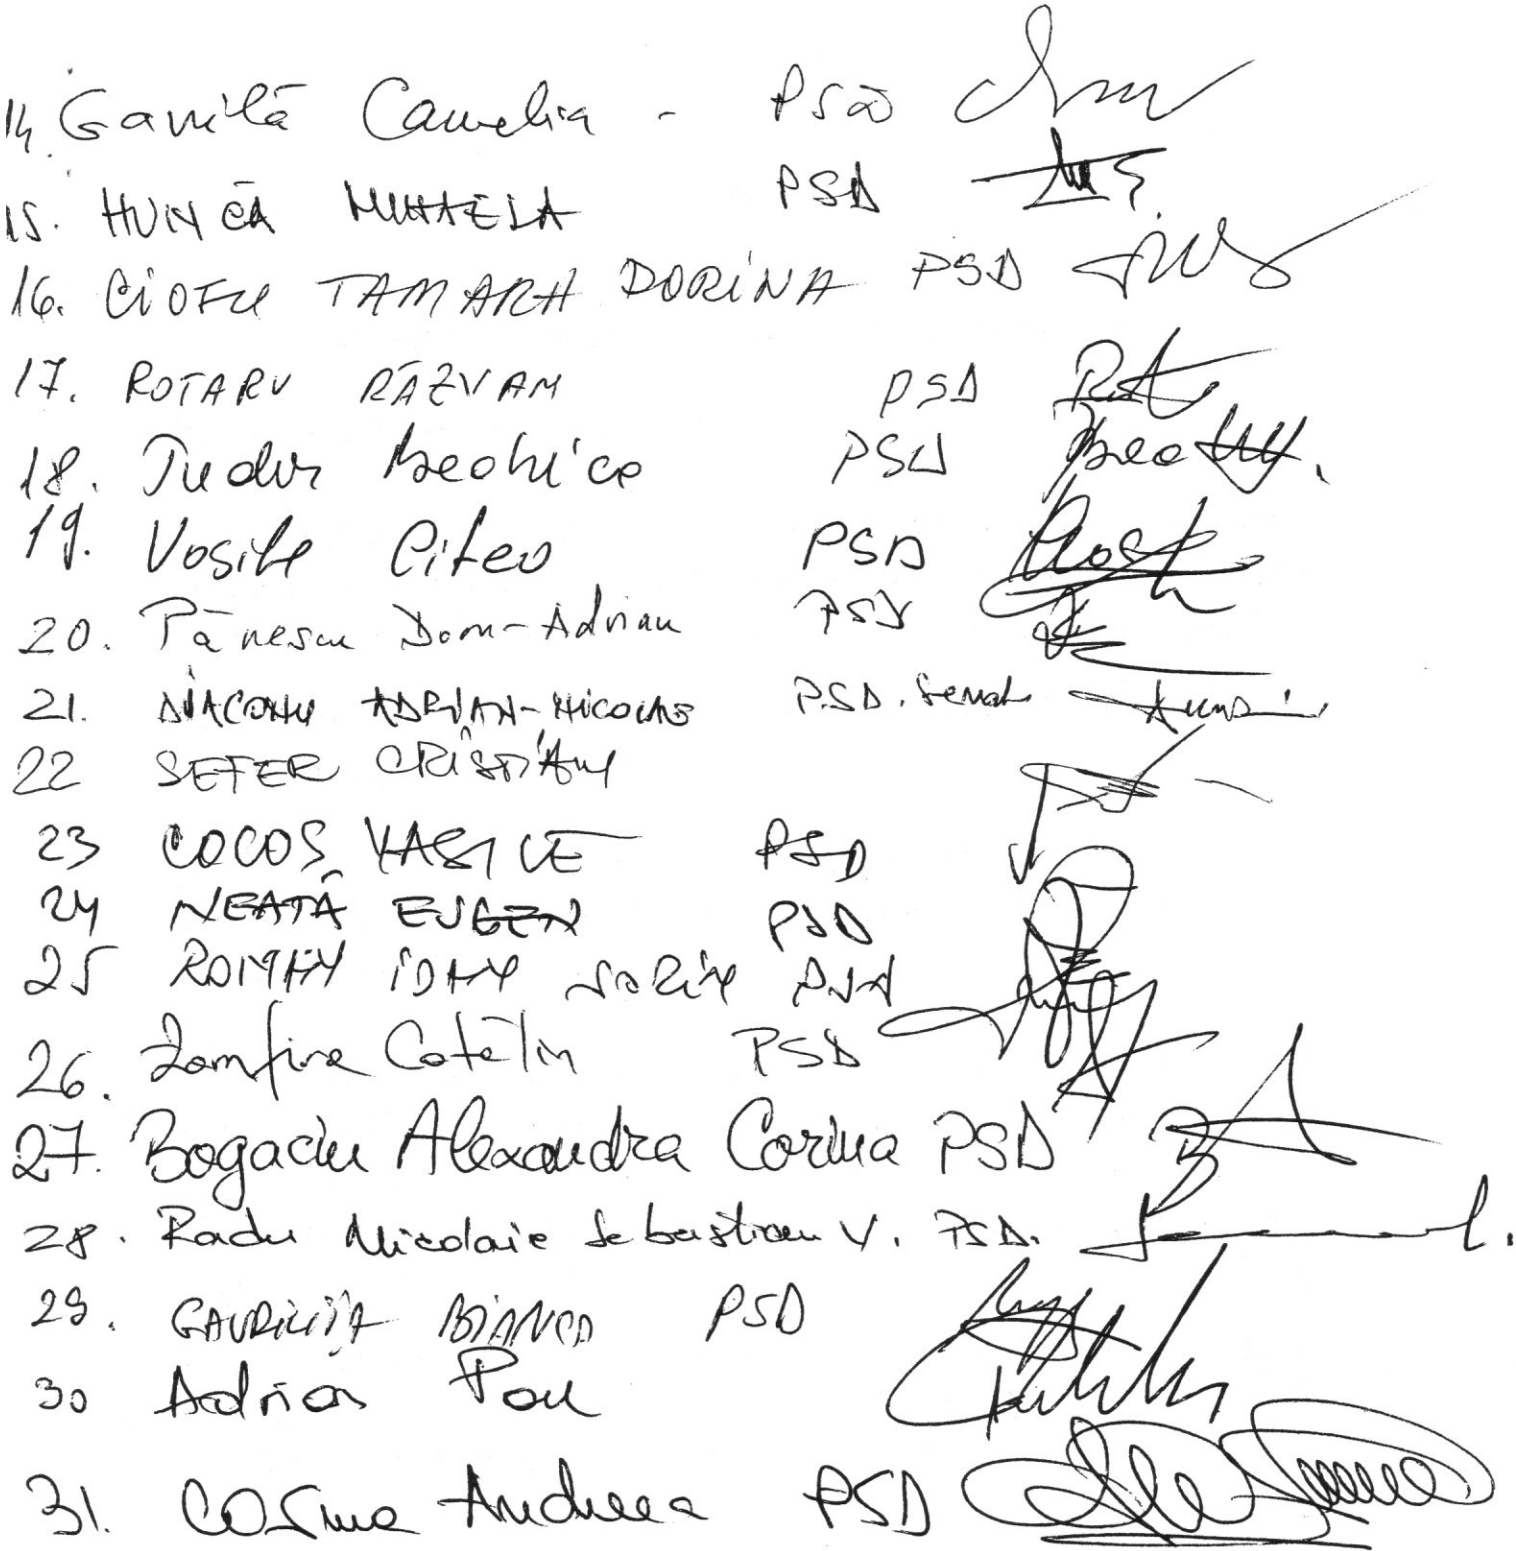 14. Gavrilă Camelia - PSD
15. HUNCĂ MIHAELA PSD
16. CIOFU TAMARA DORINA PSD
17. ROTARU RĂZVAN PSD
18. Tudor Beatrice PSD
19. Vasile Citea PSD
20. Pănescu Doru-Adrian PSD
21. DIACONU ADRIAN-NICOLAE PSD. Senat
22 SEFER CRISTIAN
23 COCOȘ VASILE PSD
24 NEAȚĂ EUGEN PSD
25 ROMAN IOAN SORIN PSD
26. Zamfira Cătălin PSD
27. Bogaciu Alexandra Corina PSD
28. Radu Nicolaie Sebastian V. PSD.
29. GAVRILIȚĂ BIANCA PSD
30 Adrian Pau
31. Cosma Andreea PSD